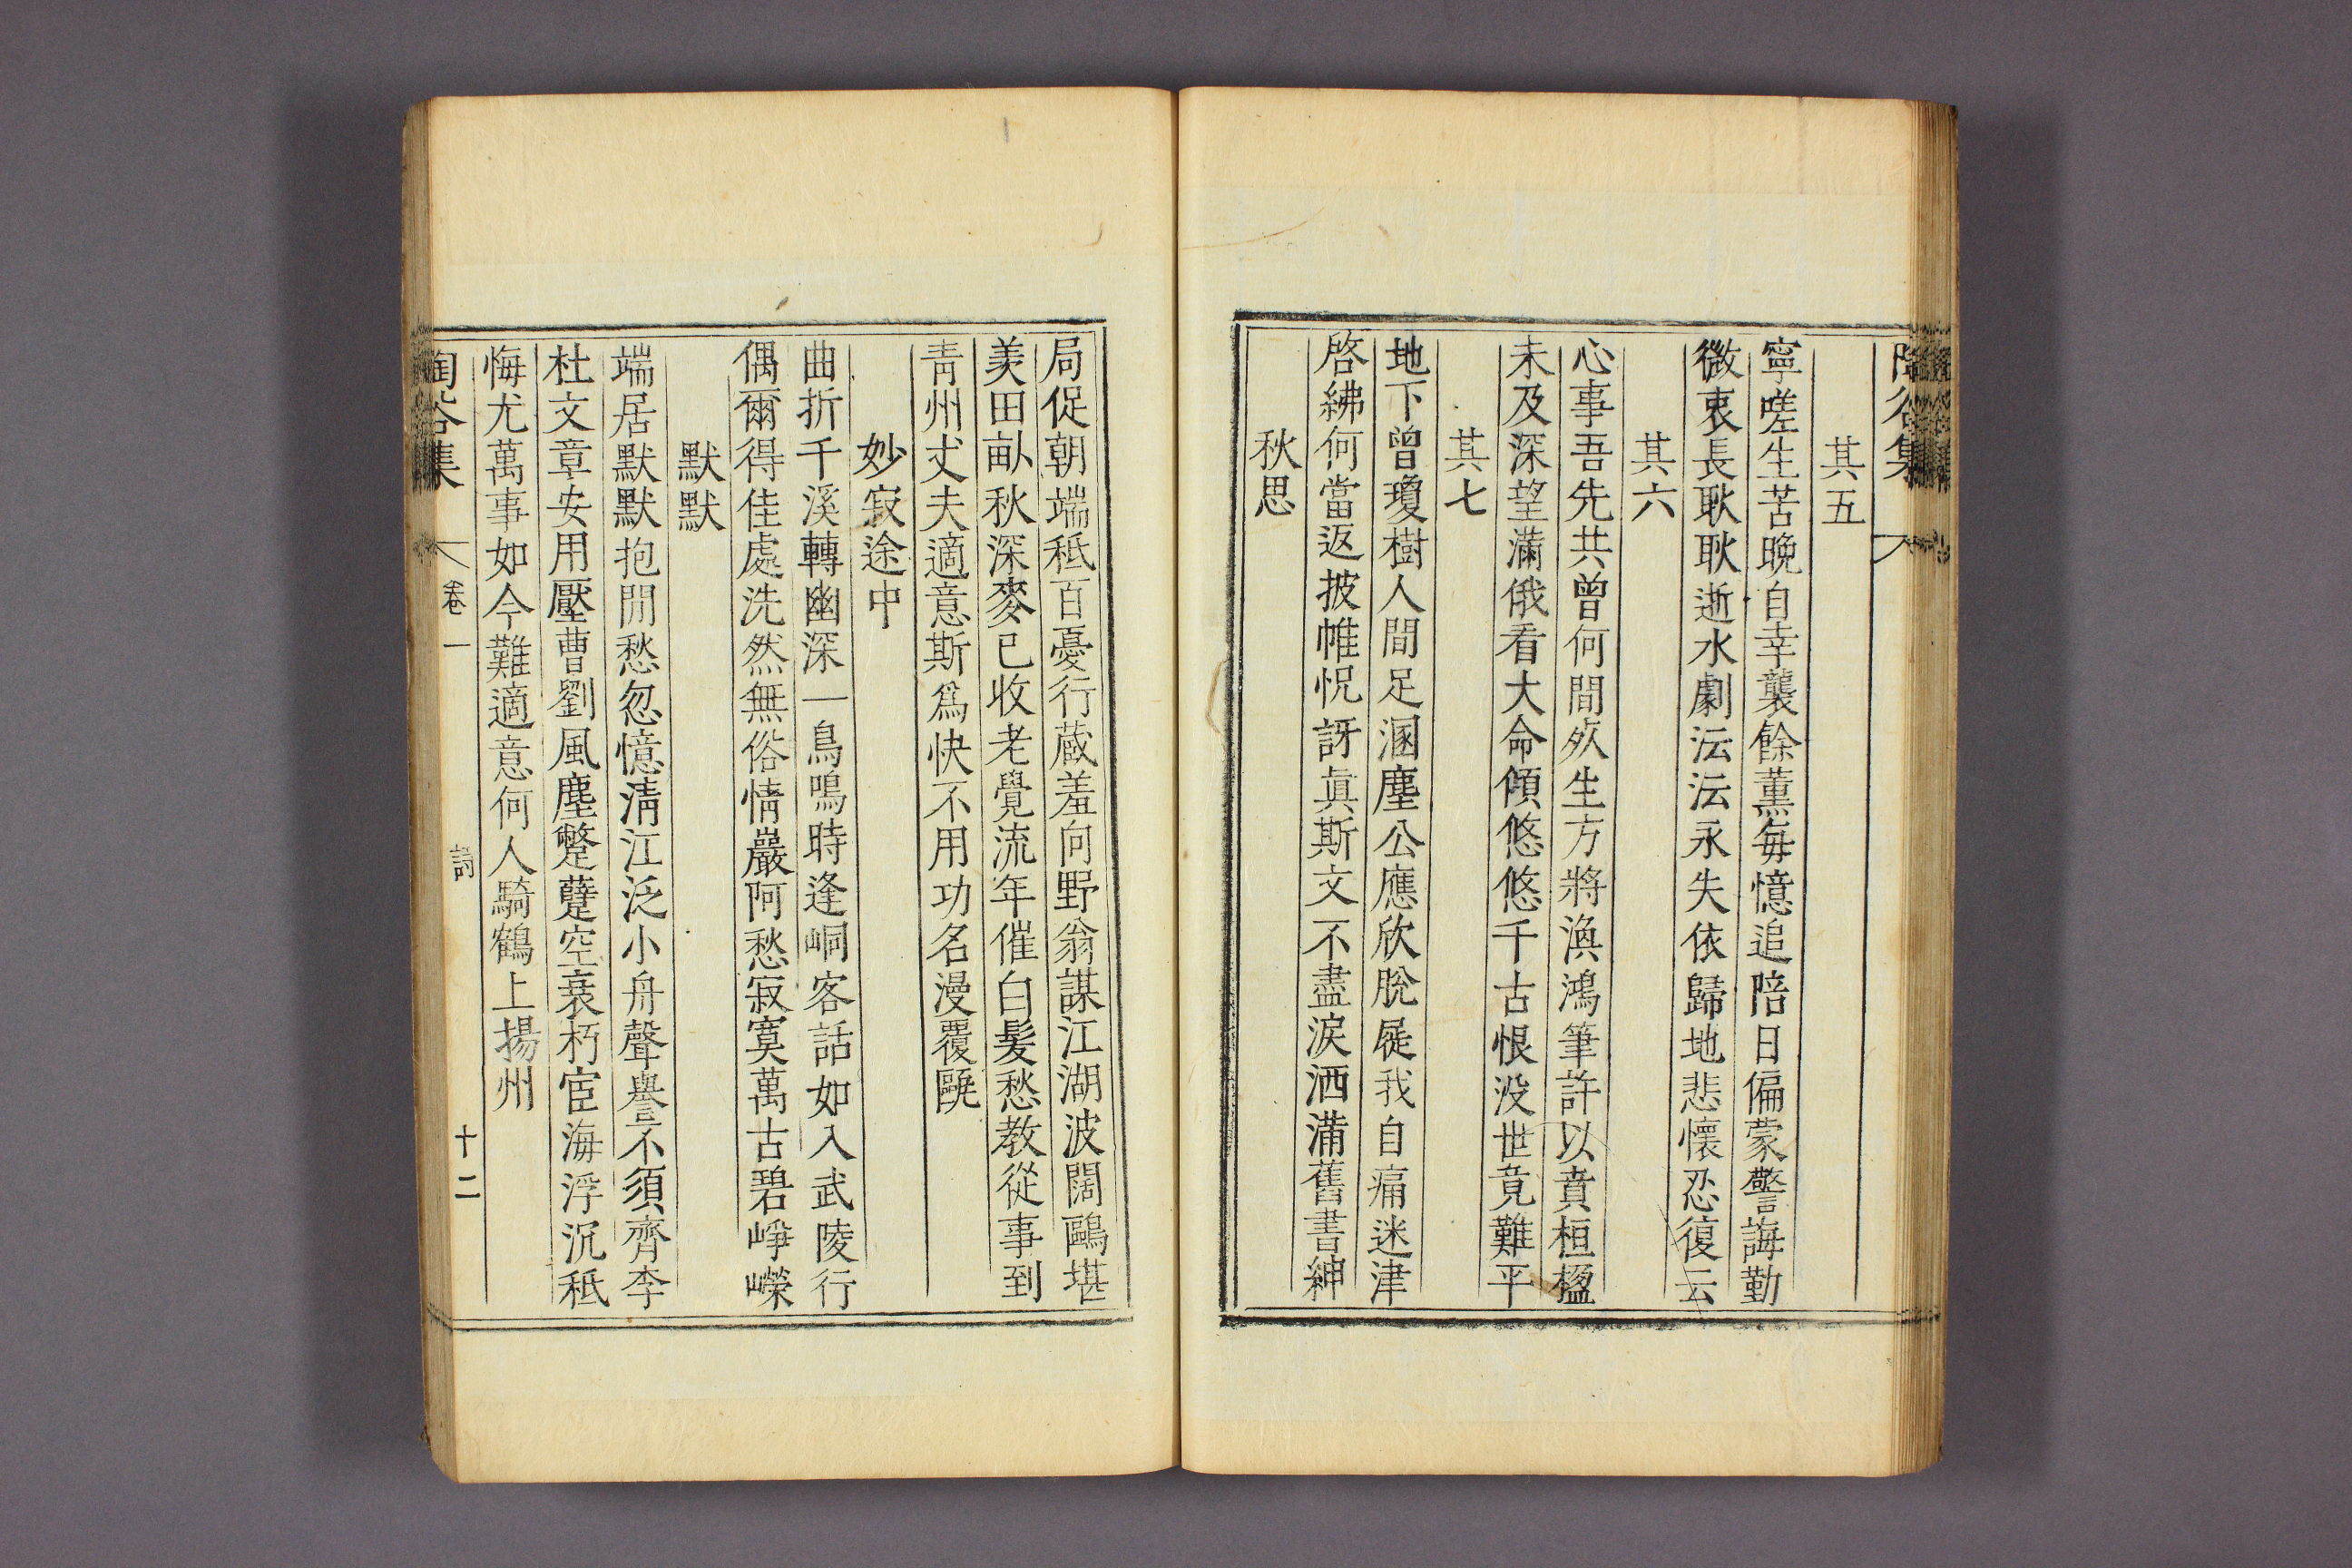 其五
寧嗟生苦晚自幸襲餘薰每憶追陪日偏蒙警誨勤
微衷長耿耿逝水劇沄沄永失依歸地悲懷忍復云
其六
心事吾先共曾何間死生方將渙鴻筆許以賁桓楹
未及深望滿俄看大命傾悠悠千古恨没世竟難平
其七
地下曾瓊樹人間足溷塵公應欣脫屣我自痛迷津
啓紼何當返披帷怳訝眞斯文不盡淚洒滿舊書紳
秋思
局促朝端秪百憂行蔵羞向野翁謀江湖波闊鷗堪
羨田畝秋深麥已收老覺流年催白髮愁教從事到
靑州丈夫適意斯爲快不用功名漫覆甌
妙寂途中
曲折千溪轉幽深一鳥鳴時逢峒客話如入武陵行
偶爾得佳處洗然無俗情巖阿愁寂寞萬古碧崢嶸
默默
端居默默抱閒愁忽憶淸江泛小舟聲譽不須齊李
杜文章安用壓曹劉風塵蹩躠空衰朽宦海浮沉秪
悔尤萬事如今難適意何人騎鶴上揚州
陶谷集 卷一 詩 十二